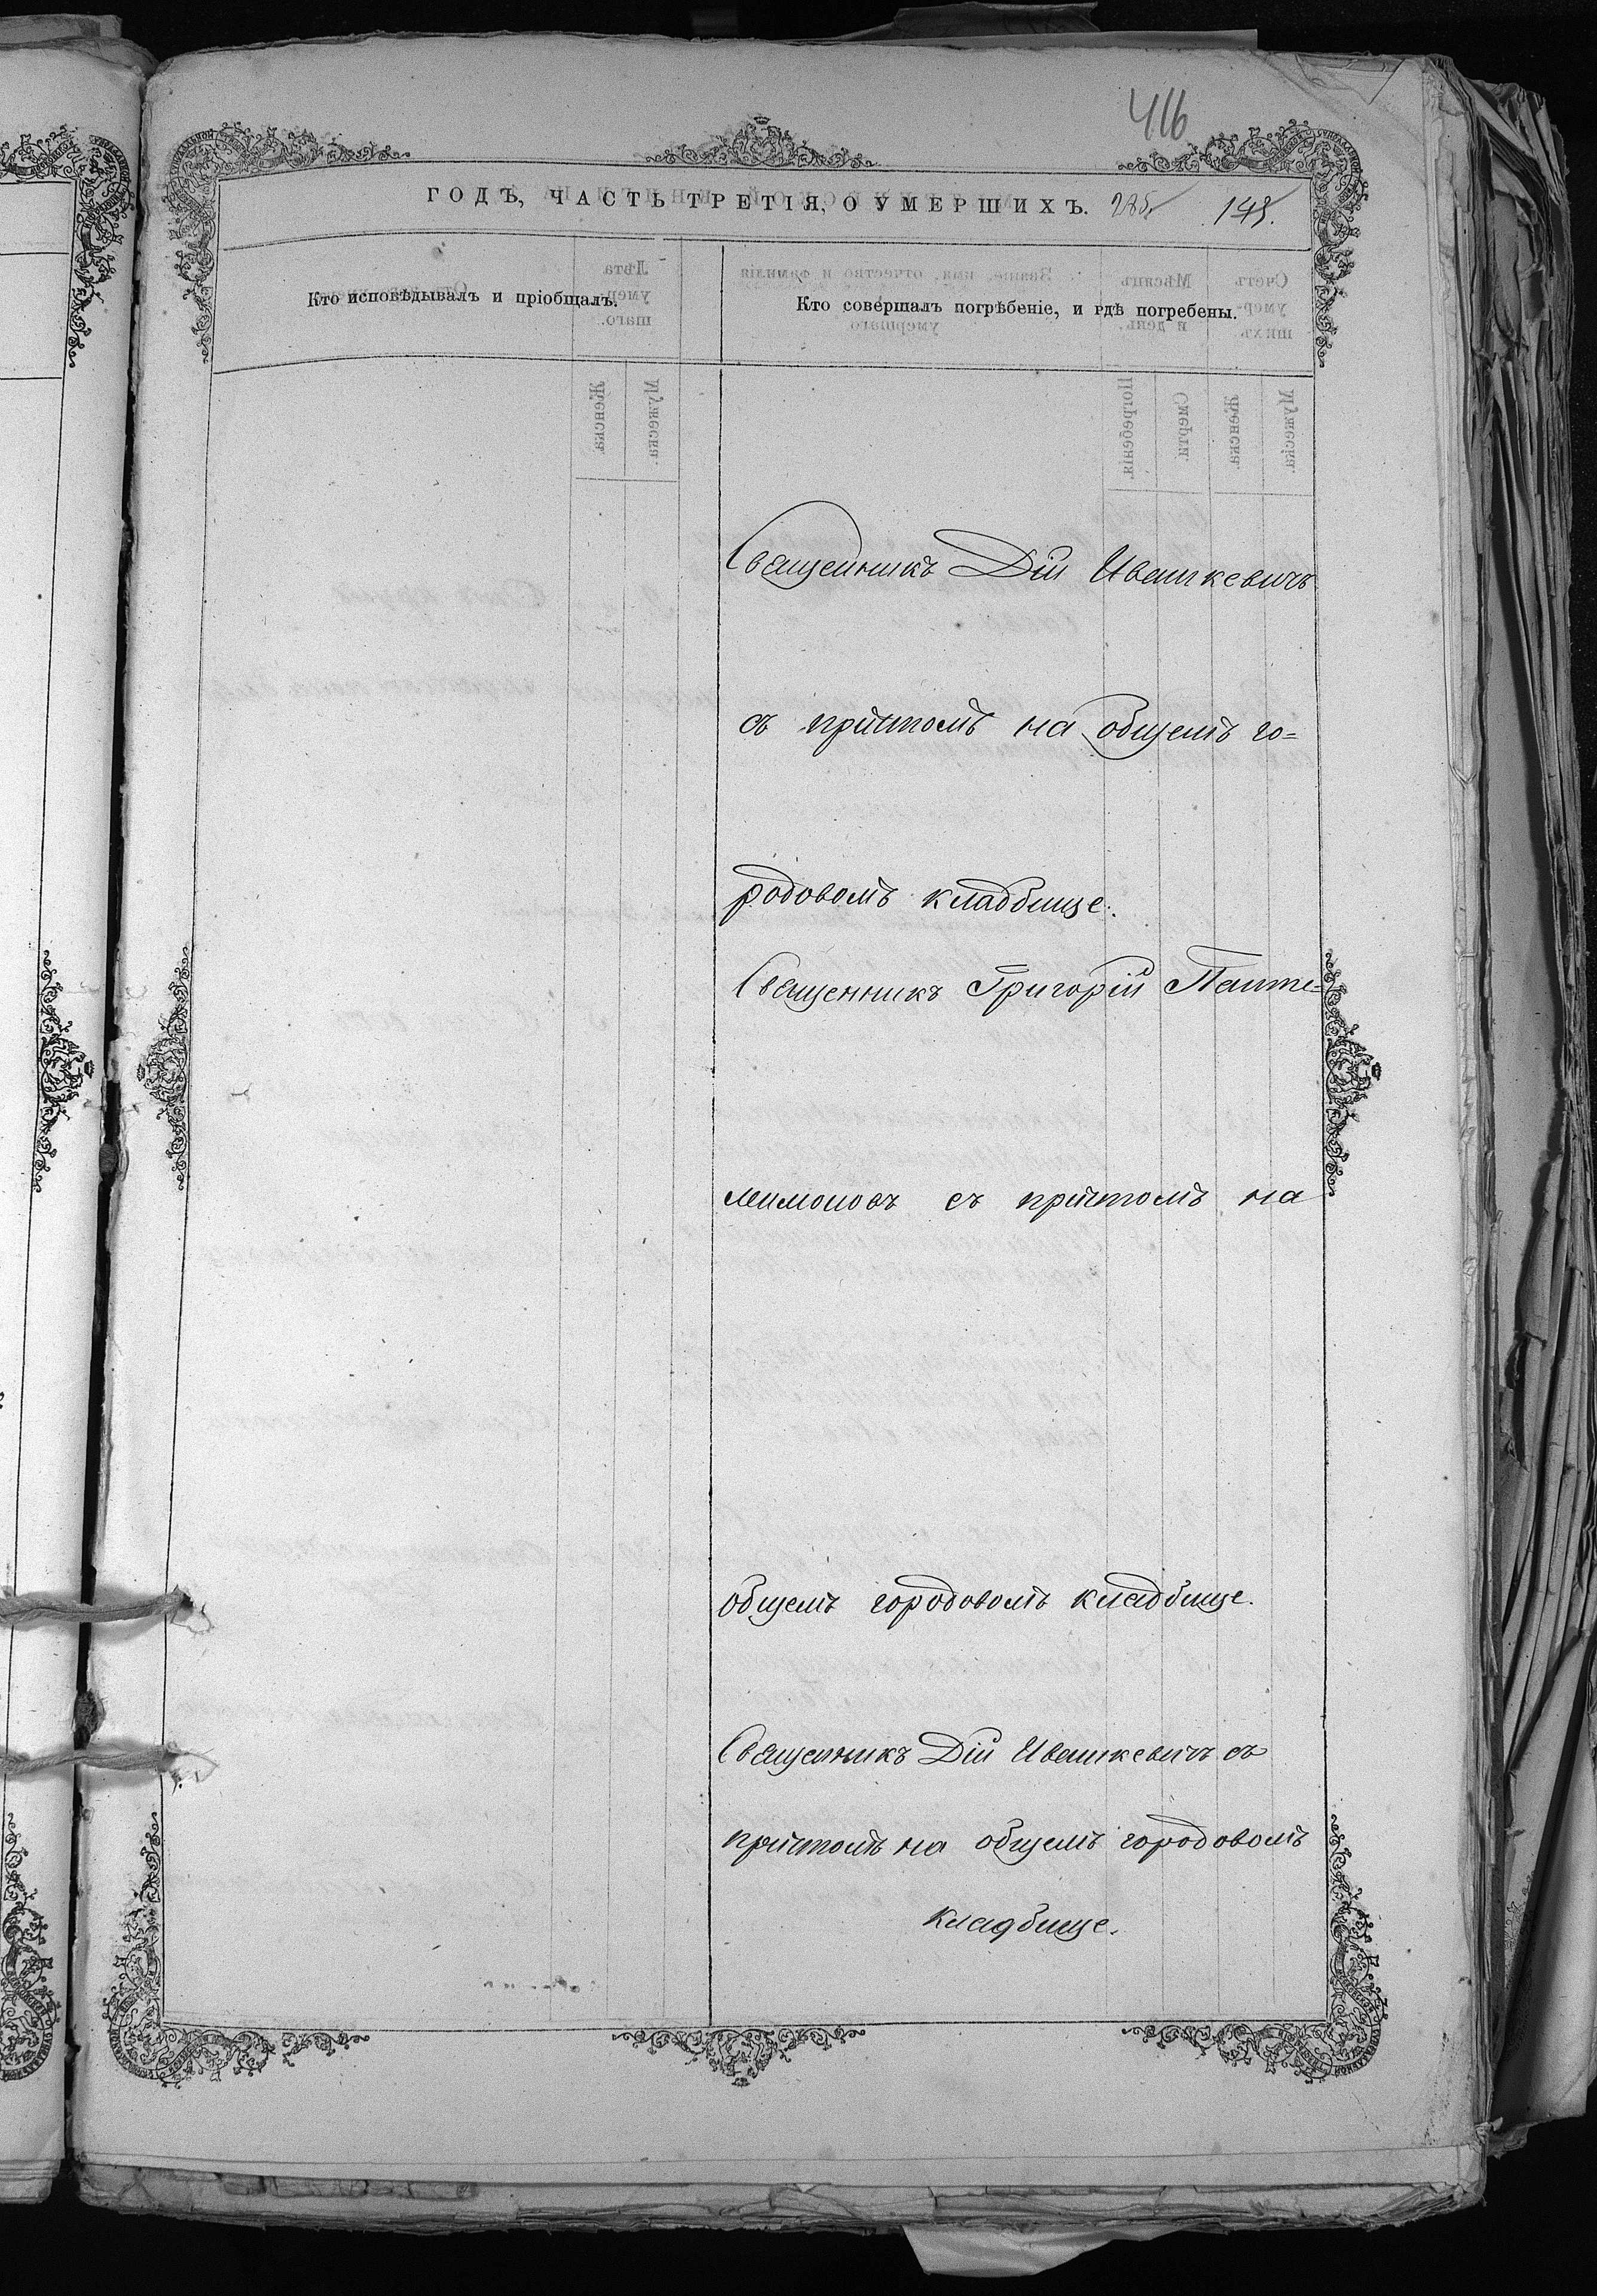 416
ГОДЪ, ЧАСТЬ ТРЕТІЯ, О УМЕРШИХЪ. 285. 143.
Кто исповѣдывалъ и пріобщалъ.
Кто совершалъ погрѣбеніе, и гдѣ погребены.
Священникъ Дій Ивашкевичъ
съ причтомъ на общемъ го=
родовомъ кладбище.
Священникъ Григорій Панте=
леимоновъ съ причтомъ на
общемъ городовомъ кладбище.
Священникъ Дій Ивашкевичъ съ
причтомъ на общемъ городовомъ
кладбище.